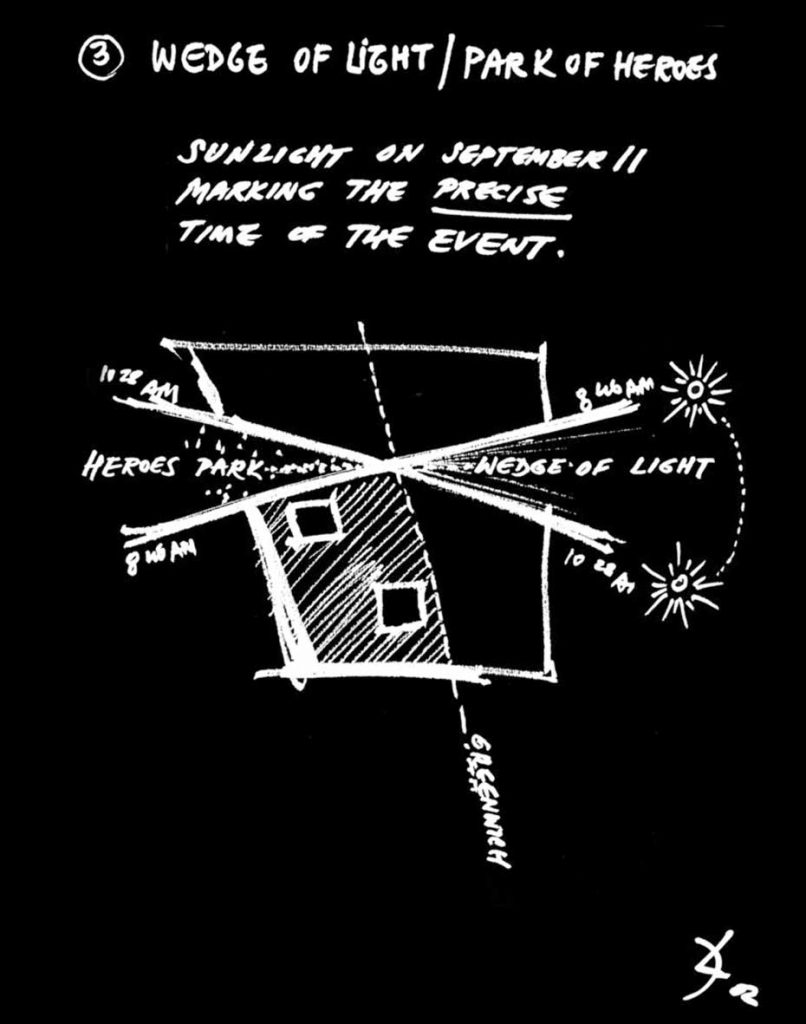 3 WEDGE OF LIGHT / PARK OF HEROES
SUNLIGHT ON SEPTEMBER 11
MARKING THE PRECISE
TIME OF THE EVENT.
10 28 AM
8 46 AM
HEROES PARK
WEDGE OF LIGHT
8 46 AM
10 28 AM
GREENWICH
02